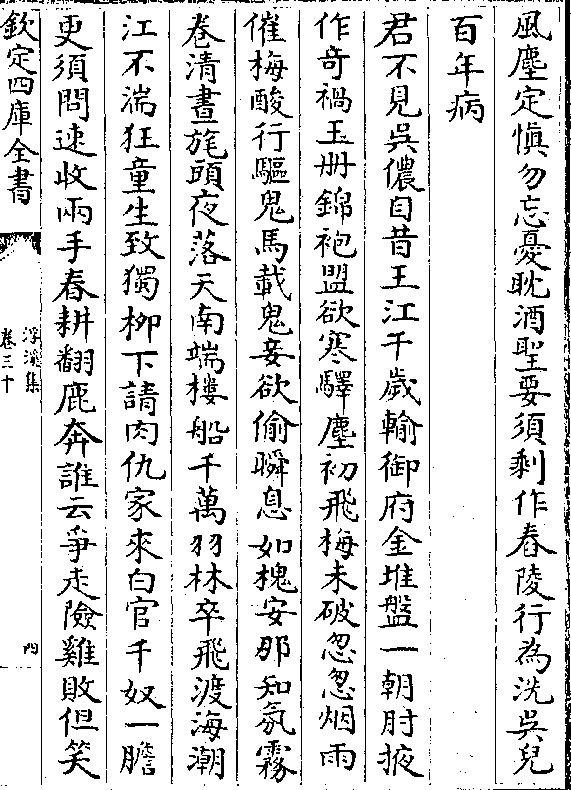 風塵定慎勿忘憂耽酒聖要須剩作舂陵行為洗吳兒
百年病
君不見吳儂自昔王江千歲輸御府金堆盤一朝肘掖
作奇禍玉册錦袍盟欲寒驛塵初飛梅未破忽忽烟雨
催梅酸行驅鬼馬載鬼妾欲偷瞬息如槐安那知氛霧
卷清晝旄頭夜落天南端樓船千萬羽林卒飛渡海潮
江不湍狂童生致獨柳下請肉仇家來白官千奴一膽
更須問速收兩手春耕翻鹿奔誰云爭走險雞敗但笑
欽定四庫全書
浮溪集
卷三十
四